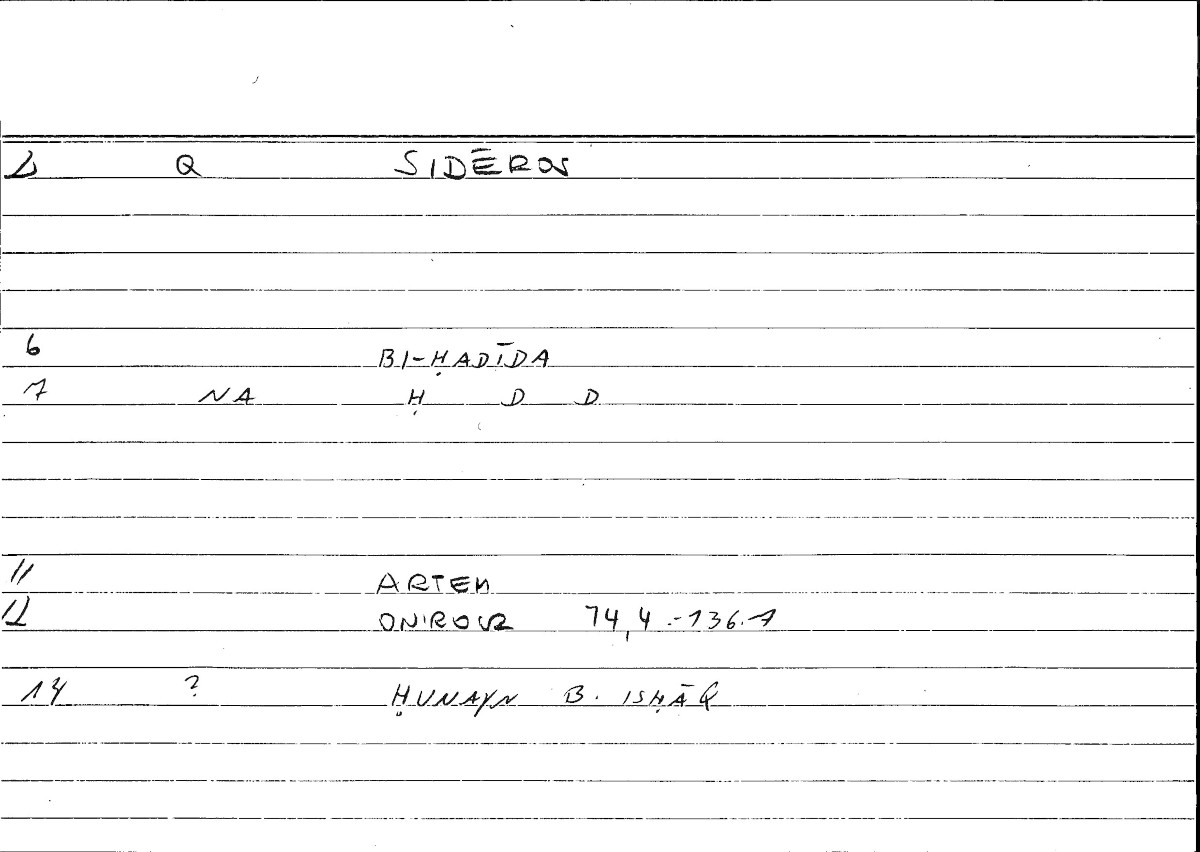 2 Q SIDĒROS
6 BI-ḤADĪDA
7 NA Ḥ D D
11 ARTEM
12 ONIROCR 74,4.-136.1
14 ? ḤUNAYN B. ISḤĀQ